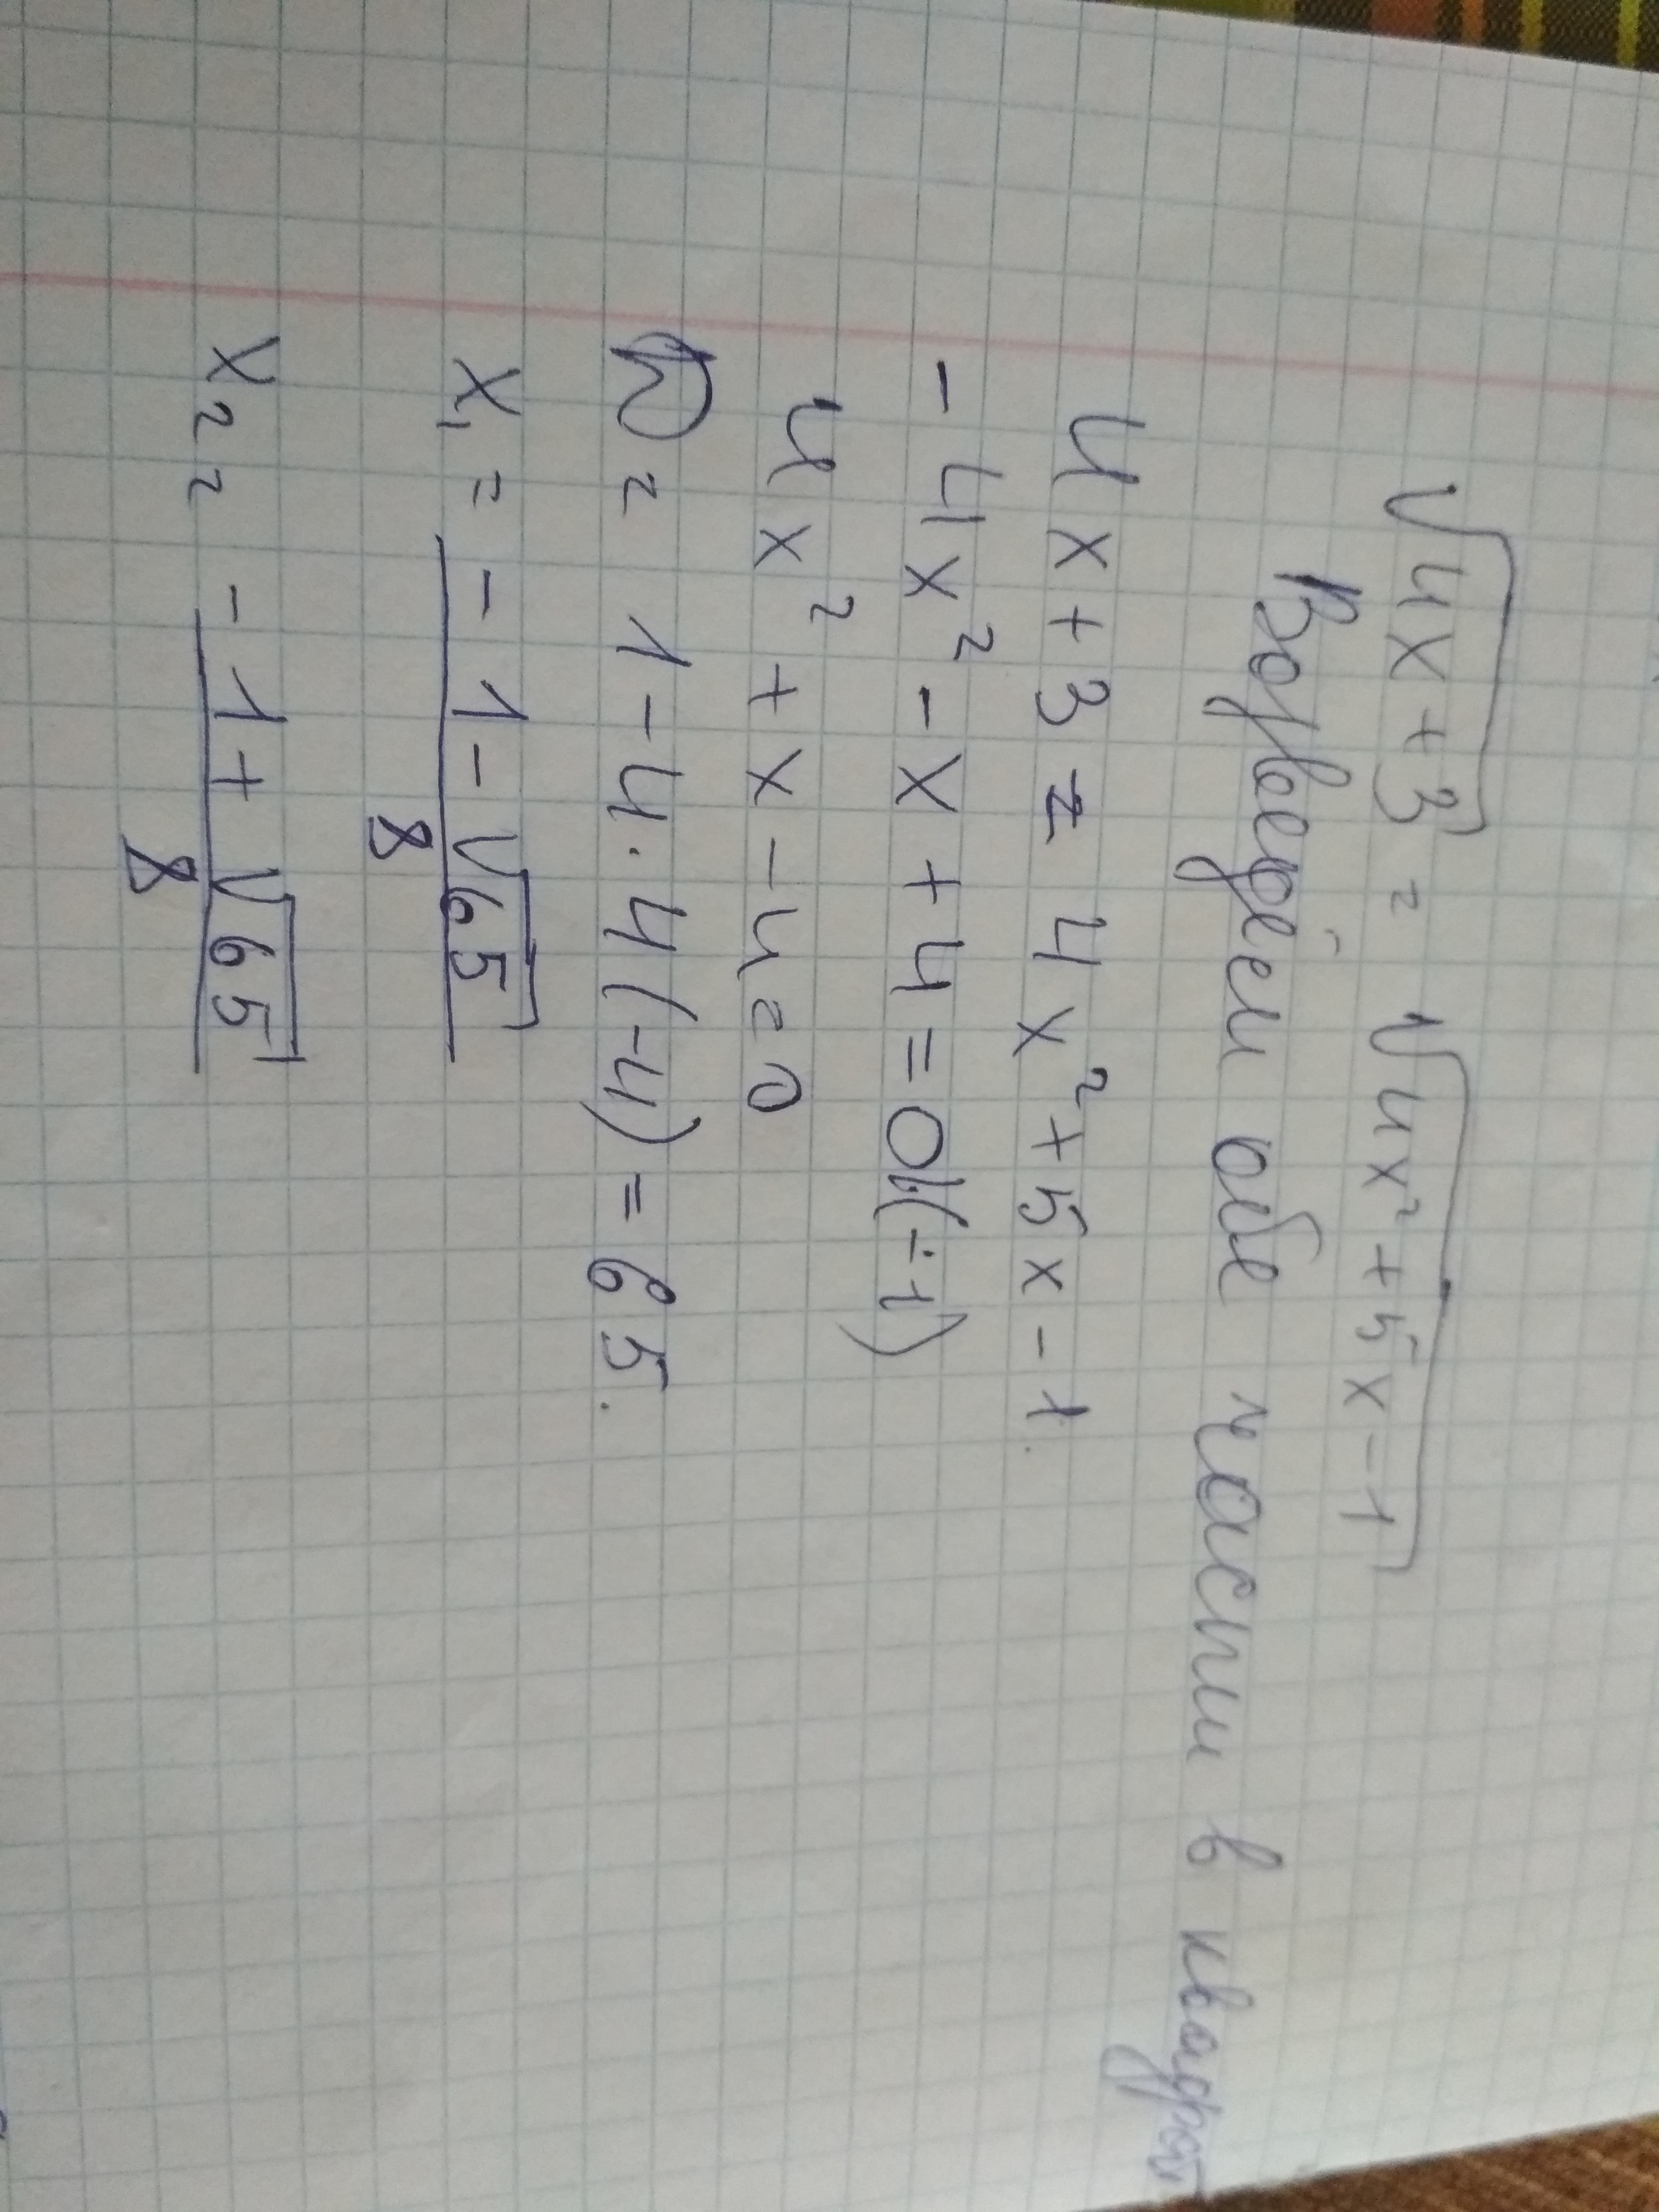 √4x+3 = √4x²+5x-1
Возведём обе части в квадрат
4x+3 = 4x²+5x-1.
-4x²-x+4=0|·(-1)
4x²+x-4=0
D= 1-4·4(-4)=65.
x₁= -1-√65/8
x₂= -1+√65/8